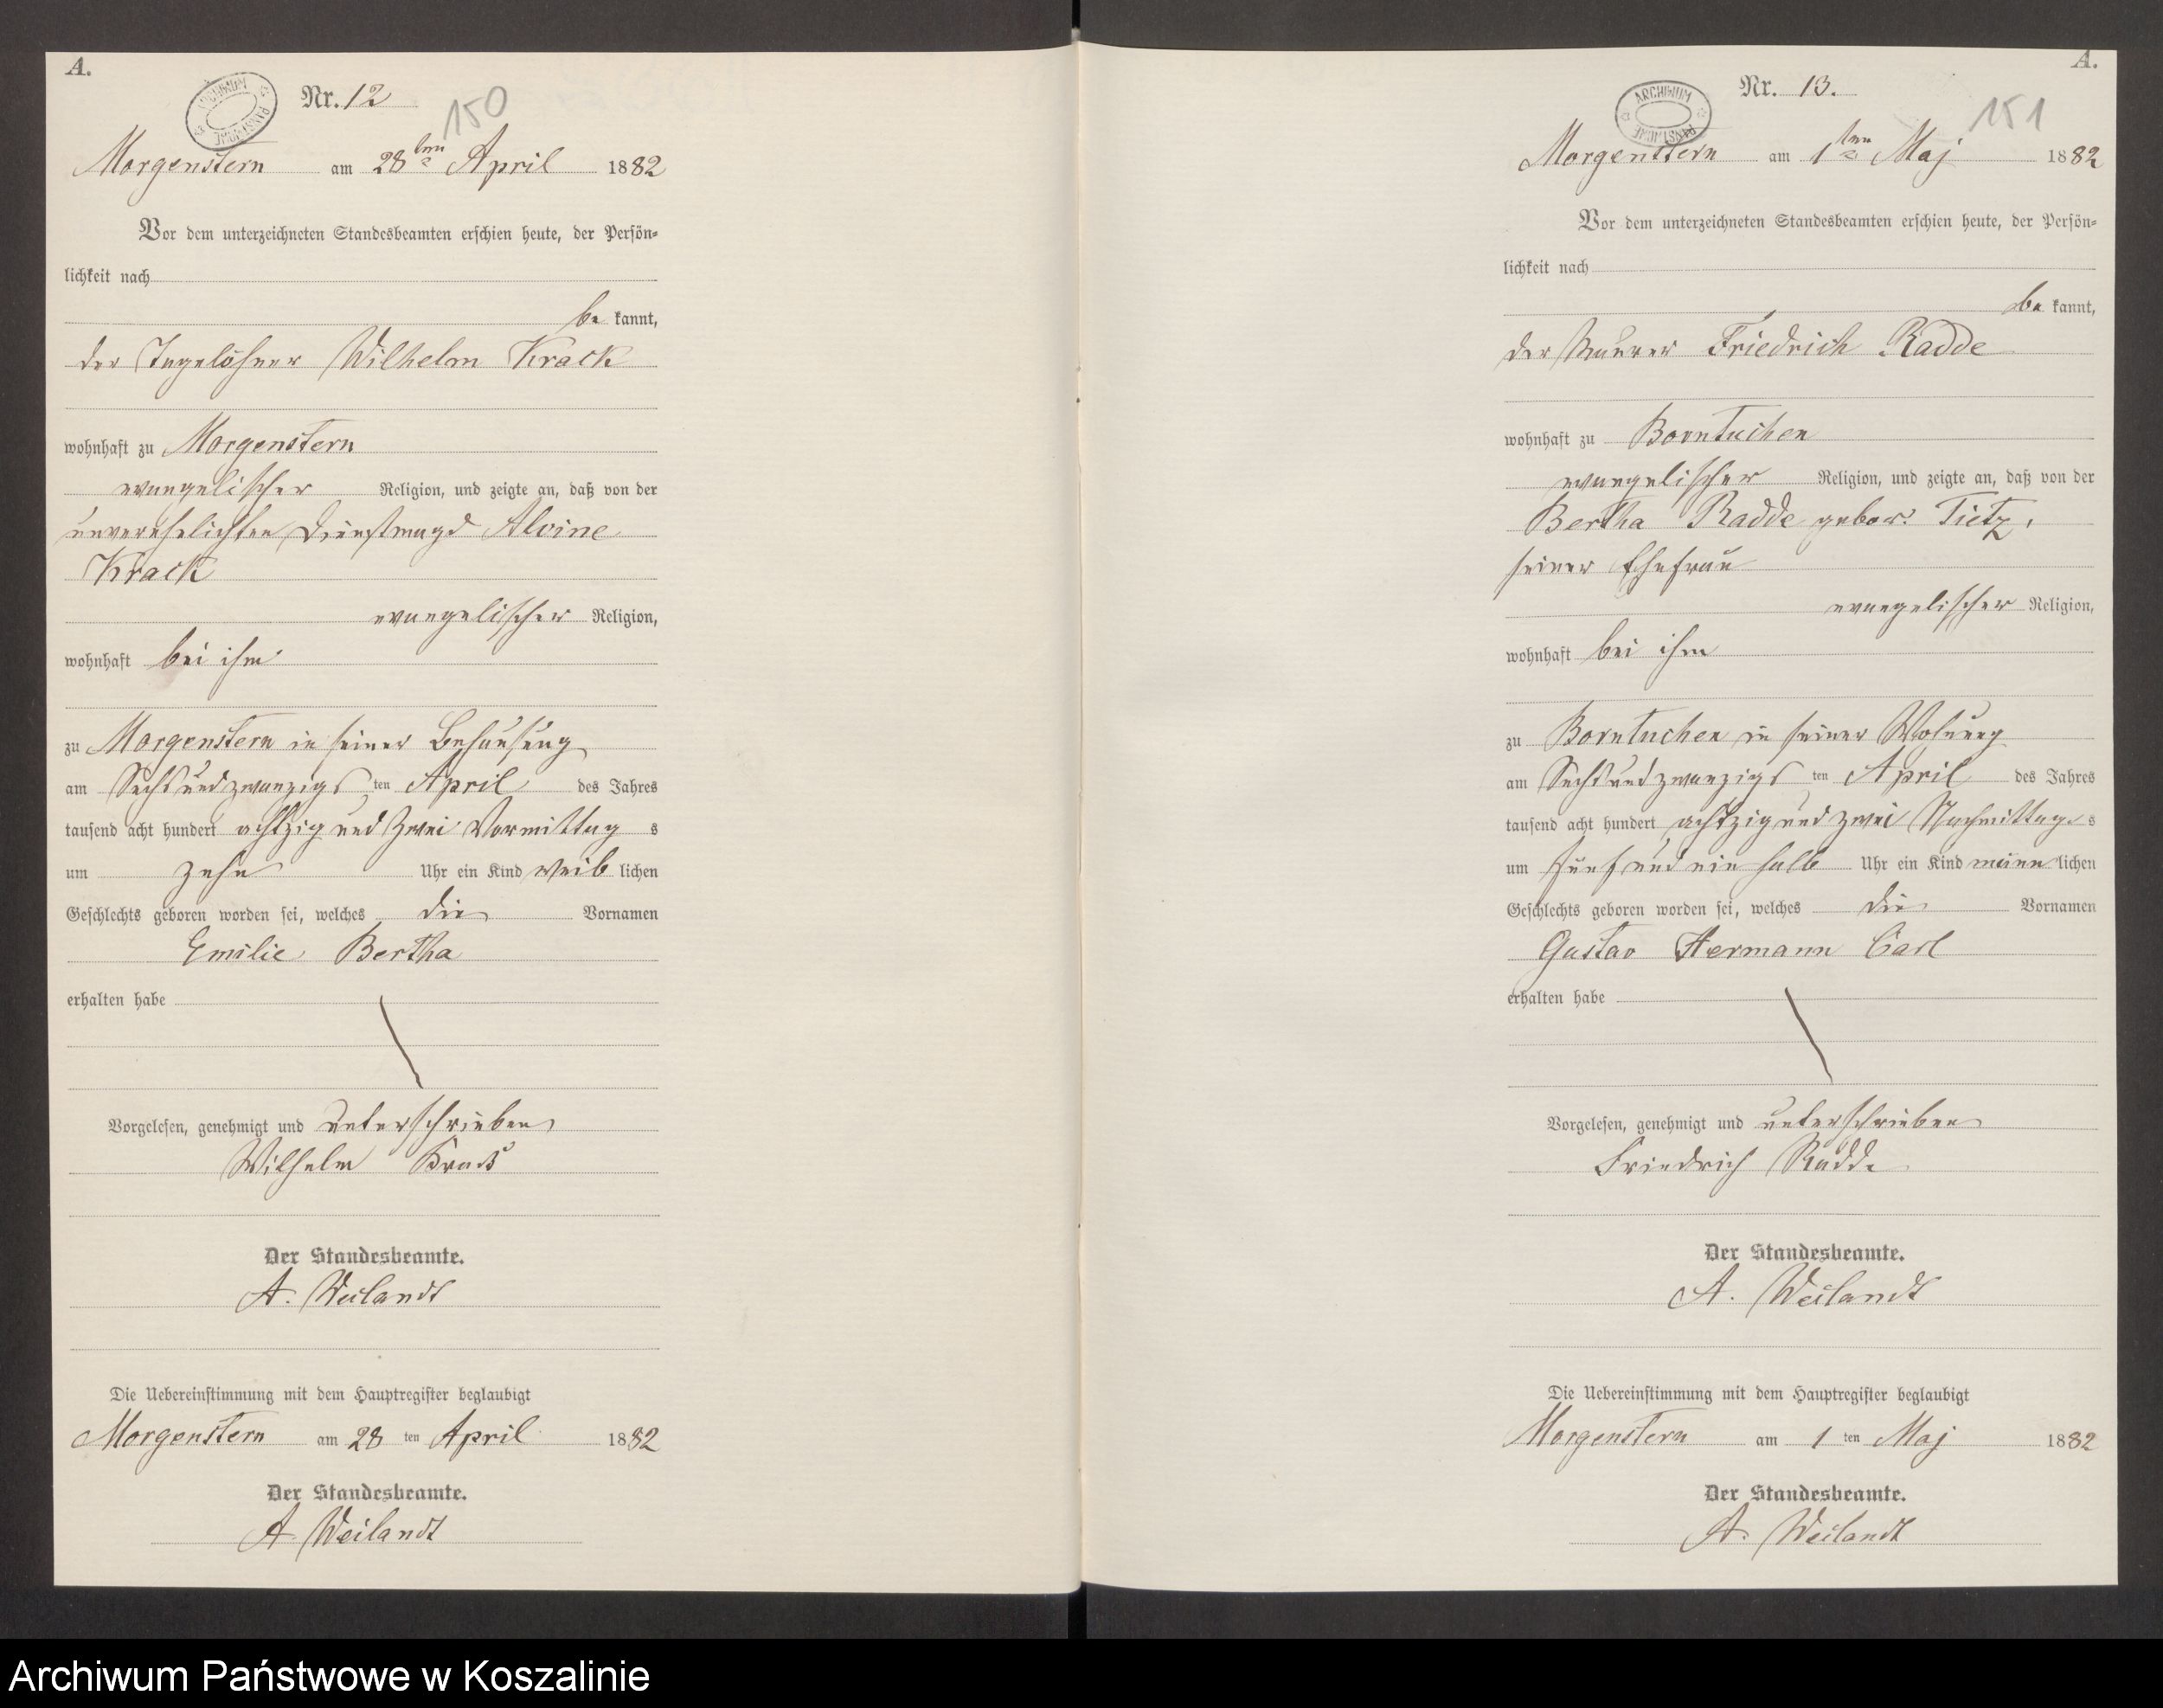 A.
ARCHIWUM PAŃSTWOWE
Nr. 12
150
Morgenstern am 28ten April 1882
Vor dem unterzeichneten Standesbeamten erschien heute, der Persön-
lichkeit nach
be kannt,
der Tagelöhner Wilhelm Krack
wohnhaft zu Morgenstern
evangelischer Religion, und zeigte an, daß von der
unverehelichten Dienstmagd Alvine
Krack
evangelischer Religion,
wohnhaft bei ihm
zu Morgenstern in seiner Behausung
am Sechsundzwanzigs ten April des Jahres
tausend acht hundert achtzig und zwei Vormittag s
um zehn Uhr ein Kind weib lichen
Geschlechts geboren worden sei, welches die Vornamen
Emilie Bertha
erhalten habe
Vorgelesen, genehmigt und unterschrieben
Wilhelm Krack
Der Standesbeamte.
A. Weilandt
Die Uebereinstimmung mit dem Hauptregister beglaubigt
Morgenstern am 28 ten April 1882
Der Standesbeamte.
A Weilandt
A.
ARCHIWUM PAŃSTWOWE
Nr. 13.
151
Morgenstern am 1ten Maj 1882
Vor dem unterzeichneten Standesbeamten erschien heute, der Persön-
lichkeit nach
be kannt,
der Maurer Friedrich Radde
wohnhaft zu Borntuchen
evangelischer Religion, und zeigte an, daß von der
Bertha Radde gebor. Tietz,
seiner Ehefrau
evangelischer Religion,
wohnhaft bei ihm
zu Borntuchen in seiner Wohnung
am Sechsundzwanzigs ten April des Jahres
tausend acht hundert achtzig und zwei Nachmittag s
um fünf und ein halb Uhr ein Kind männ lichen
Geschlechts geboren worden sei, welches die Vornamen
Gustav Hermann Carl
erhalten habe
Vorgelesen, genehmigt und unterschrieben
Friedrich Radde
Der Standesbeamte.
A. Weilandt
Die Uebereinstimmung mit dem Hauptregister beglaubigt
Morgenstern am 1 ten Maj 1882
Der Standesbeamte.
A. Weilandt
Archiwum Państwowe w Koszalinie